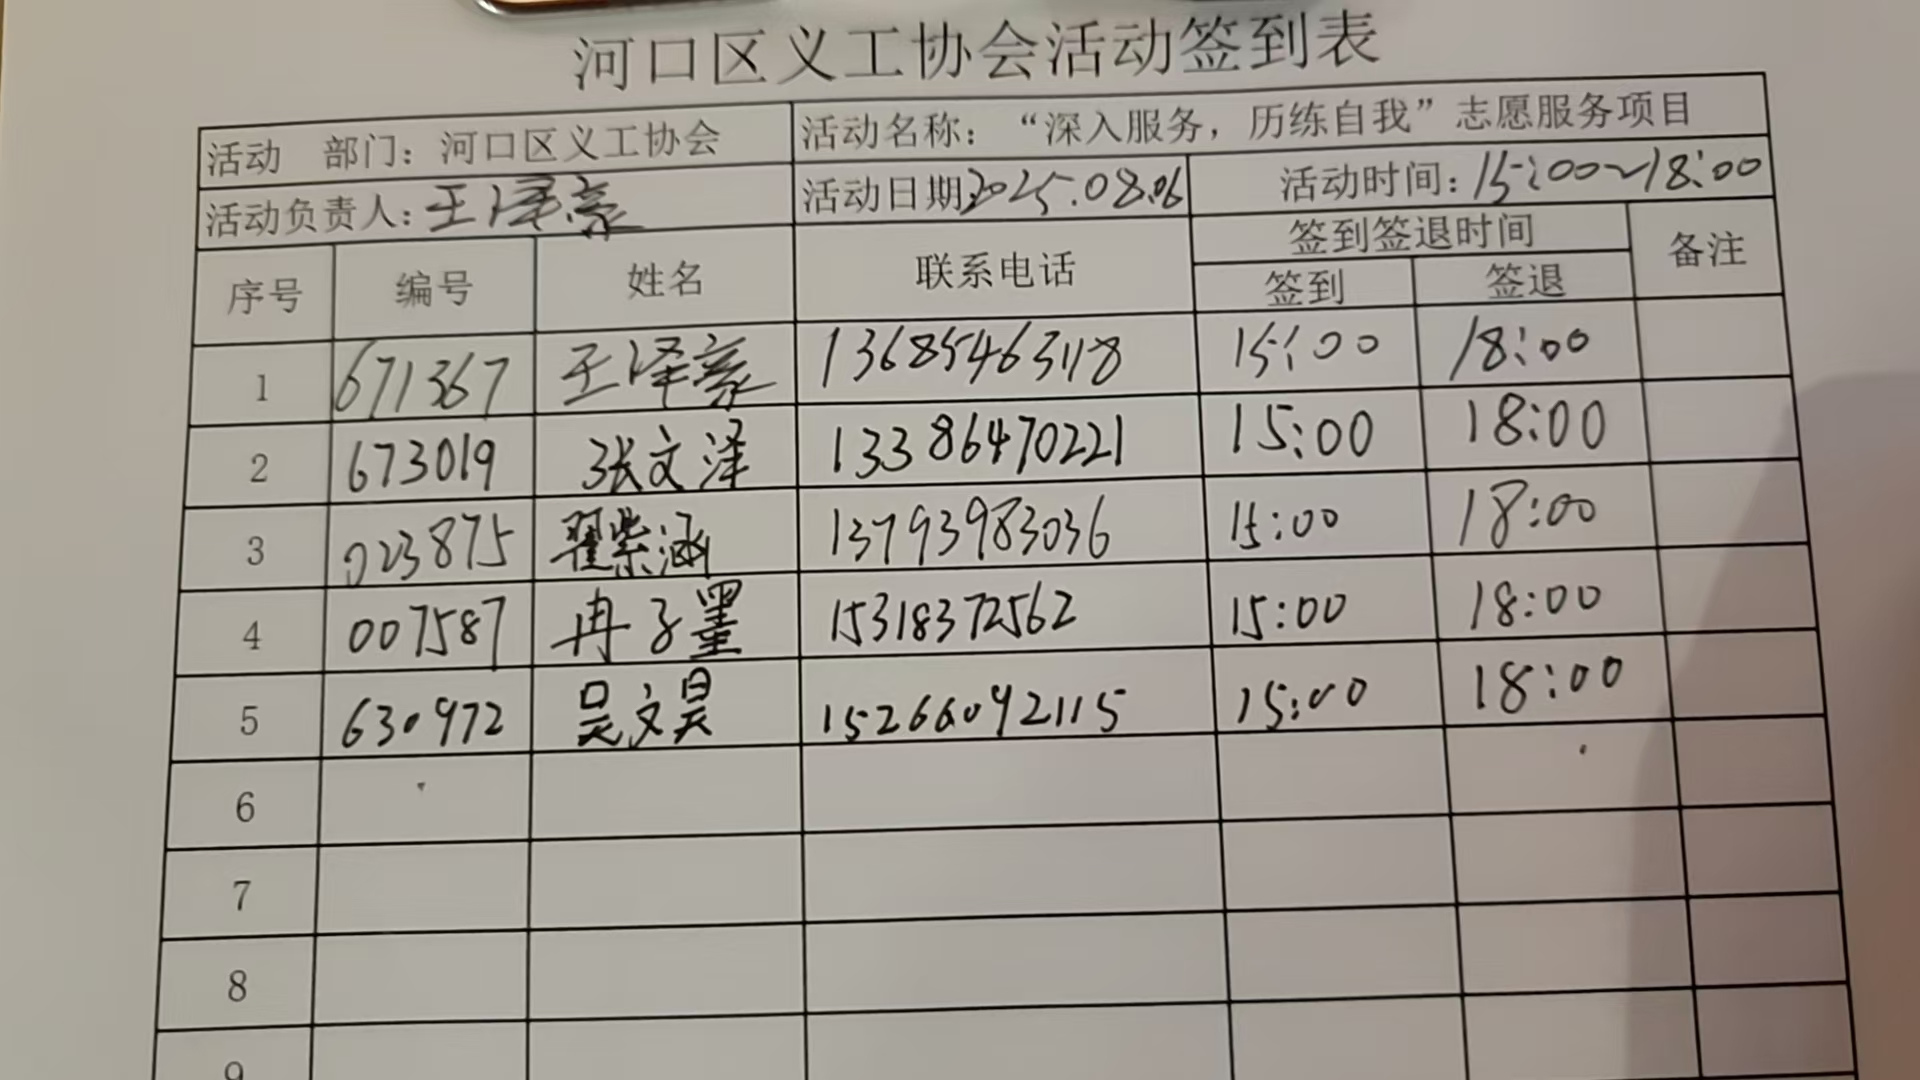 河口区义工协会活动签到表
活动 部门：河口区义工协会 活动名称：“深入服务，历练自我”志愿服务项目
活动负责人：王泽豪 活动日期2025.08.06 活动时间：15:00~18:00
序号 编号 姓名 联系电话 签到签退时间 备注
签到 签退
1 671367 王泽豪 13685463118 15:00 18:00
2 673019 张文泽 13386470221 15:00 18:00
3 023875 翟紫涵 13793983036 15:00 18:00
4 007587 冉子墨 15318372562 15:00 18:00
5 630972 吴文昊 15266092115 15:00 18:00
6
7
8
9